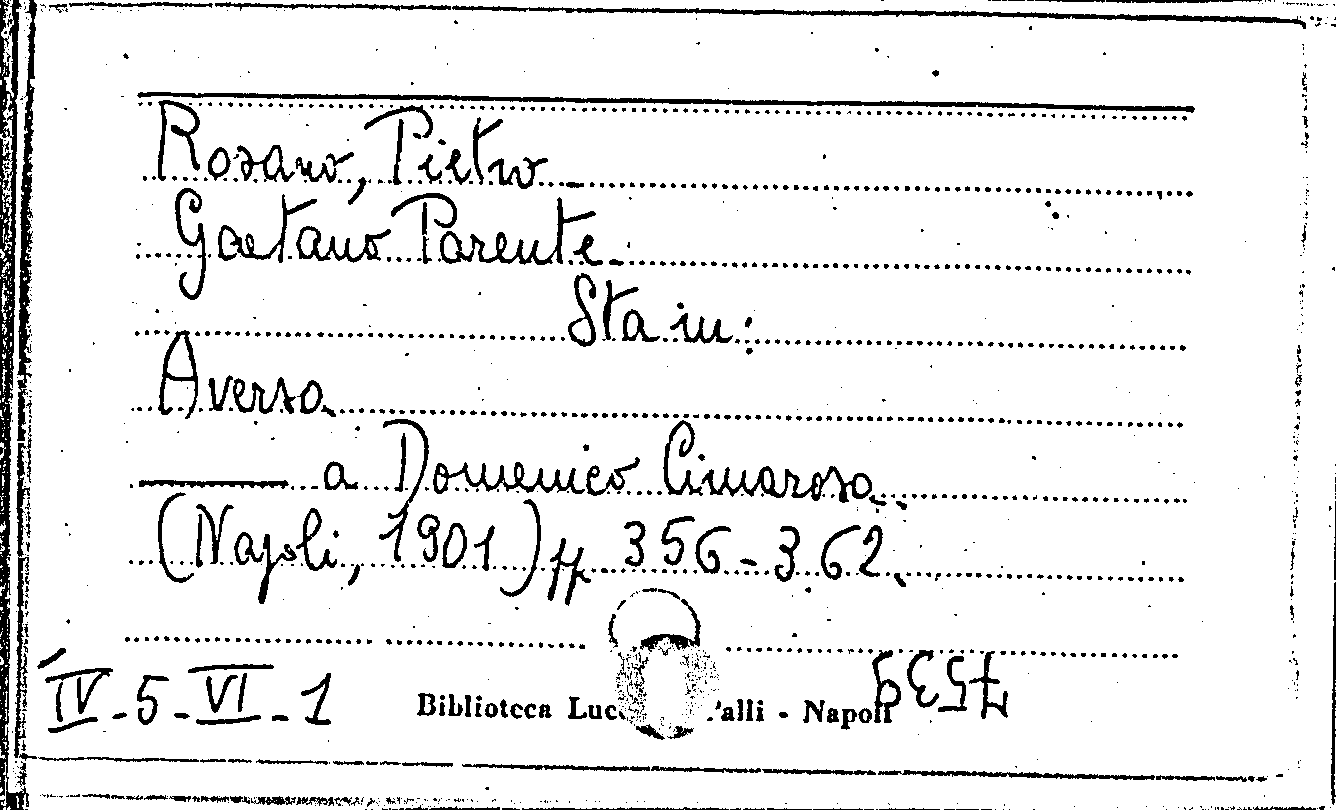 Rosano, Pietro
Gaetano Parente.
Sta in:
Aversa
——— a Domenico Cimarosa.
(Napoli, 1901) pp. 356-362.
IV-5-VI-1
Biblioteca Luc alli - Napoli
7539